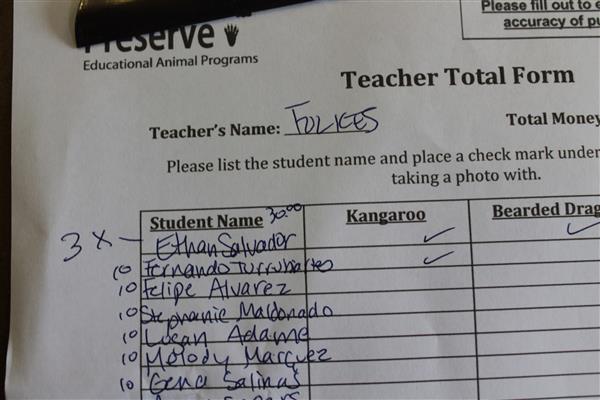 Preserve
Educational Animal Programs
Please fill out to e
accuracy of pu
Teacher Total Form
Teacher's Name: FOLKES
Total Money
Please list the student name and place a check mark under
taking a photo with.
Student Name 30.00 Kangaroo Bearded Drag
3 x - Ethan Salvador
10 Fernando Turrubiartes
10 Felipe Alvarez
10 Stephanie Maldonado
10 Logan Adame
10 Melody Marquez
10 Gena Salinas